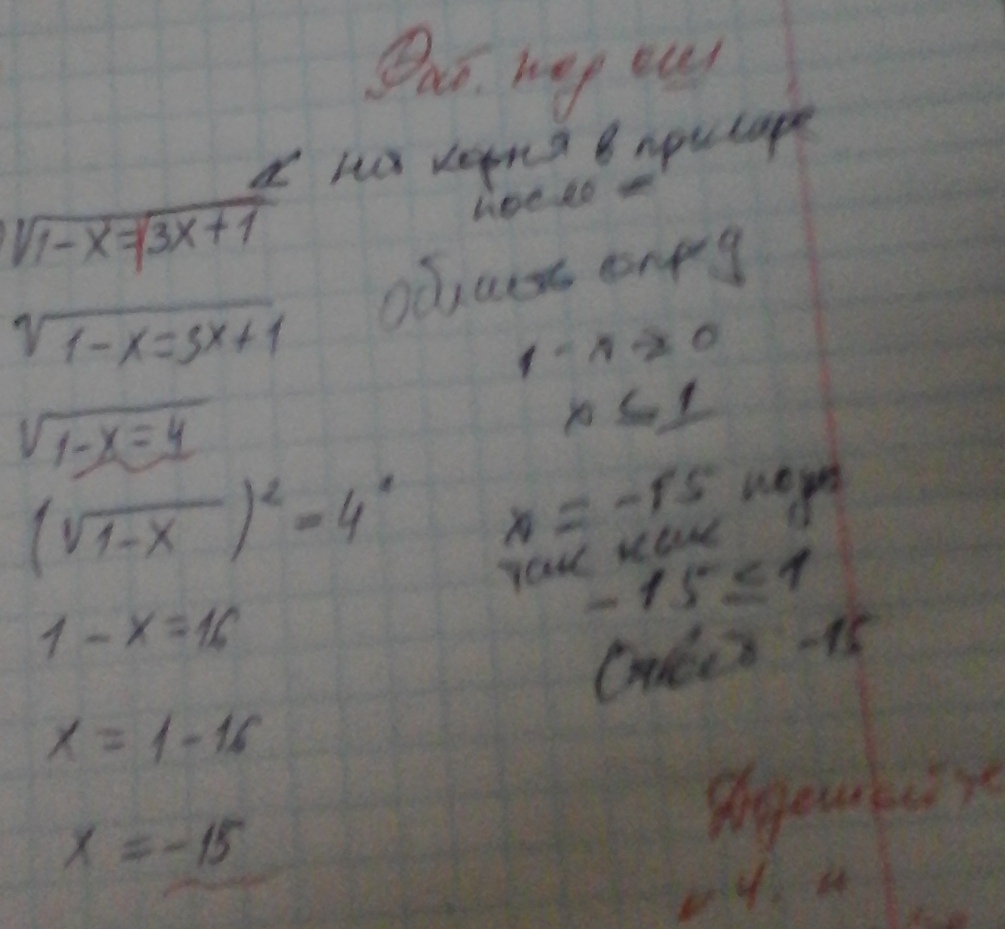 Раб. над ош
нет корня в примере
после =
√1-x=√3x+1
√1-x=3x+1
√1-x=4
(√1-x)² = 4²
1-x=16
x = 1-16
x = -15
Область опред
1-x ≥ 0
x ≤ 1
x = -15 подх
так как
-15 ≤ 1
Ответ -15
Дорешайте
н 4. и